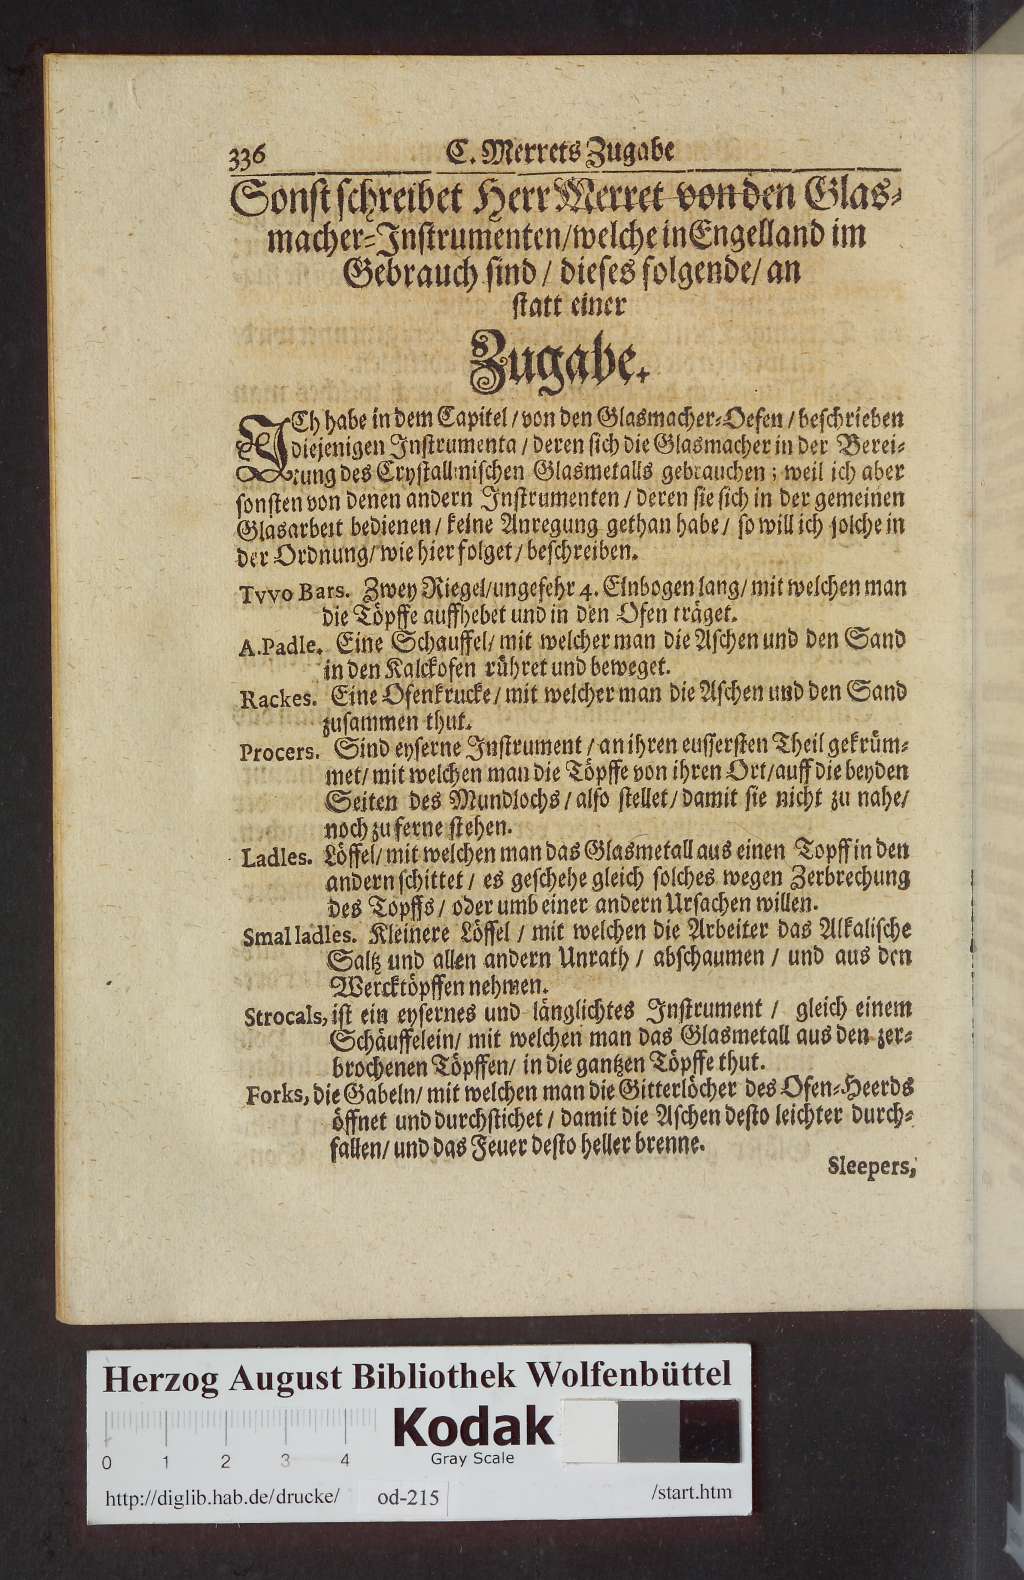 336 C. Merrets Zugabe
Sonst schreibet Herr Merret von den Glas-
macher-Instrumenten/welche in Engelland im
Gebrauch sind/ dieses folgende/ an
statt einer
Zugabe.
ICh habe in dem Capitel/von den Glasmacher-Oefen/beschrieben
diejenigen Instrumenta/deren sich die Glasmacher in der Berei-
tung des Crystallinischen Glasmetalls gebrauchen; weil ich aber
sonsten von denen andern Instrumenten/deren sie sich in der gemeinen
Glasarbeit bedienen/keine Anregung gethan habe/ so will ich solche in
der Ordnung/wie hier folget/beschreiben.
Tvvo Bars. Zwey Riegel/ungefehr 4. Elnbogen lang/mit welchen man
die Töpffe auffhebet und in den Ofen träget.
A.Padle. Eine Schauffel/mit welcher man die Aschen und den Sand
in den Kalckofen rühret und beweget.
Rackes. Eine Ofenkrucke/mit welcher man die Aschen und den Sand
zusammen thut.
Procers. Sind eyserne Instrument/an ihren eussersten Theil gekrüm-
met/mit welchen man die Töpffe von ihren Ort/auff die beyden
Seiten des Mundlochs/also stellet/damit sie nicht zu nahe/
noch zu ferne stehen.
Ladles. Löffel/mit welchen man das Glasmetall aus einen Topff in den
andern schittet/ es geschehe gleich solches wegen Zerbrechung
des Topffs/ oder umb einer andern Ursachen willen.
Smal ladles. Kleinere Löffel/ mit welchen die Arbeiter das Alkalische
Saltz und allen andern Unrath/ abschaumen/ und aus den
Wercktöpffen nehmen.
Strocals, ist ein eysernes und länglichtes Instrument/ gleich einem
Schäuffelein/ mit welchen man das Glasmetall aus den zer-
brochenen Töpffen/ in die gantzen Töpffe thut.
Forks, die Gabeln/mit welchen man die Gitterlöcher des Ofen-Heerds
öffnet und durchstichet/damit die Aschen desto leichter durch-
fallen/und das Feuer desto heller brenne.
Sleepers,
Herzog August Bibliothek Wolfenbüttel
Kodak
Gray Scale
0 1 2 3 4
http://diglib.hab.de/drucke/ od-215 /start.htm